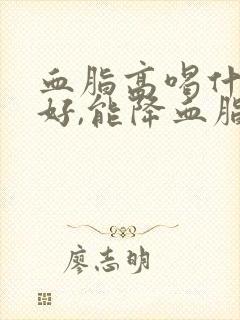 血脂高喝什
好,能降血脂
廖志明